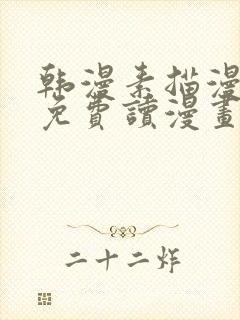 韩漫素描漫
免費讀漫畫
二十二炸